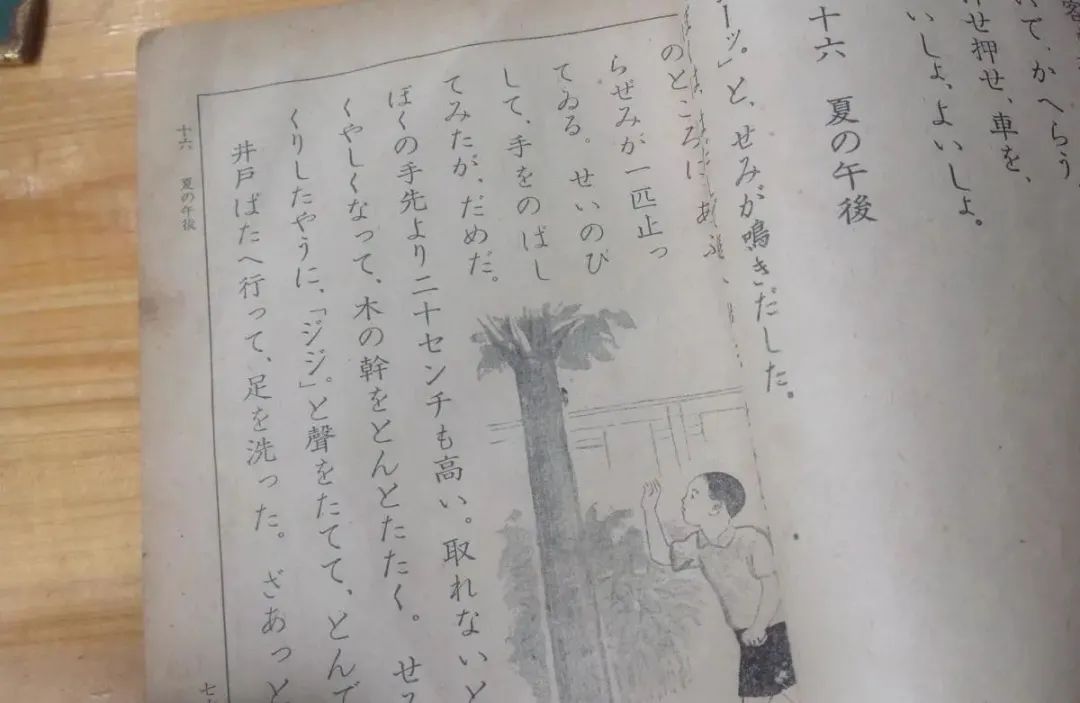 いで、かへらう
押せ、車を、
いしよ、よいしよ。
十六　夏の午後
ーッ。」と、せみが鳴きだした。
のところに
らぜみが一匹止っ
てゐる。せいのび
して、手をのばし
てみたが、だめだ。
ぼくの手先より二十センチも高い。取れないと
くやしくなって、木の幹をとんとたたく。せ
くりしたやうに、「ジジ」。と聲をたてて、とんで
井戸ばたへ行って、足を洗った。ざあっと
十六　夏の午後
七